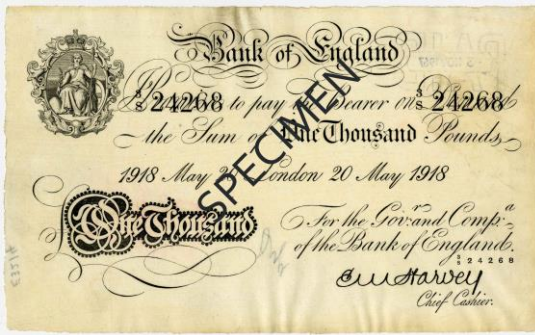 Bank of England
3/8 24268 3/8 24268
to pay the Bearer on Demand
the Sum of One Thousand Pounds
1918 May 20 London 20 May 1918
SPECIMEN
One Thousand
For the Gov.r and Comp.a
of the Bank of England.
3/8 24268
Chief Cashier.